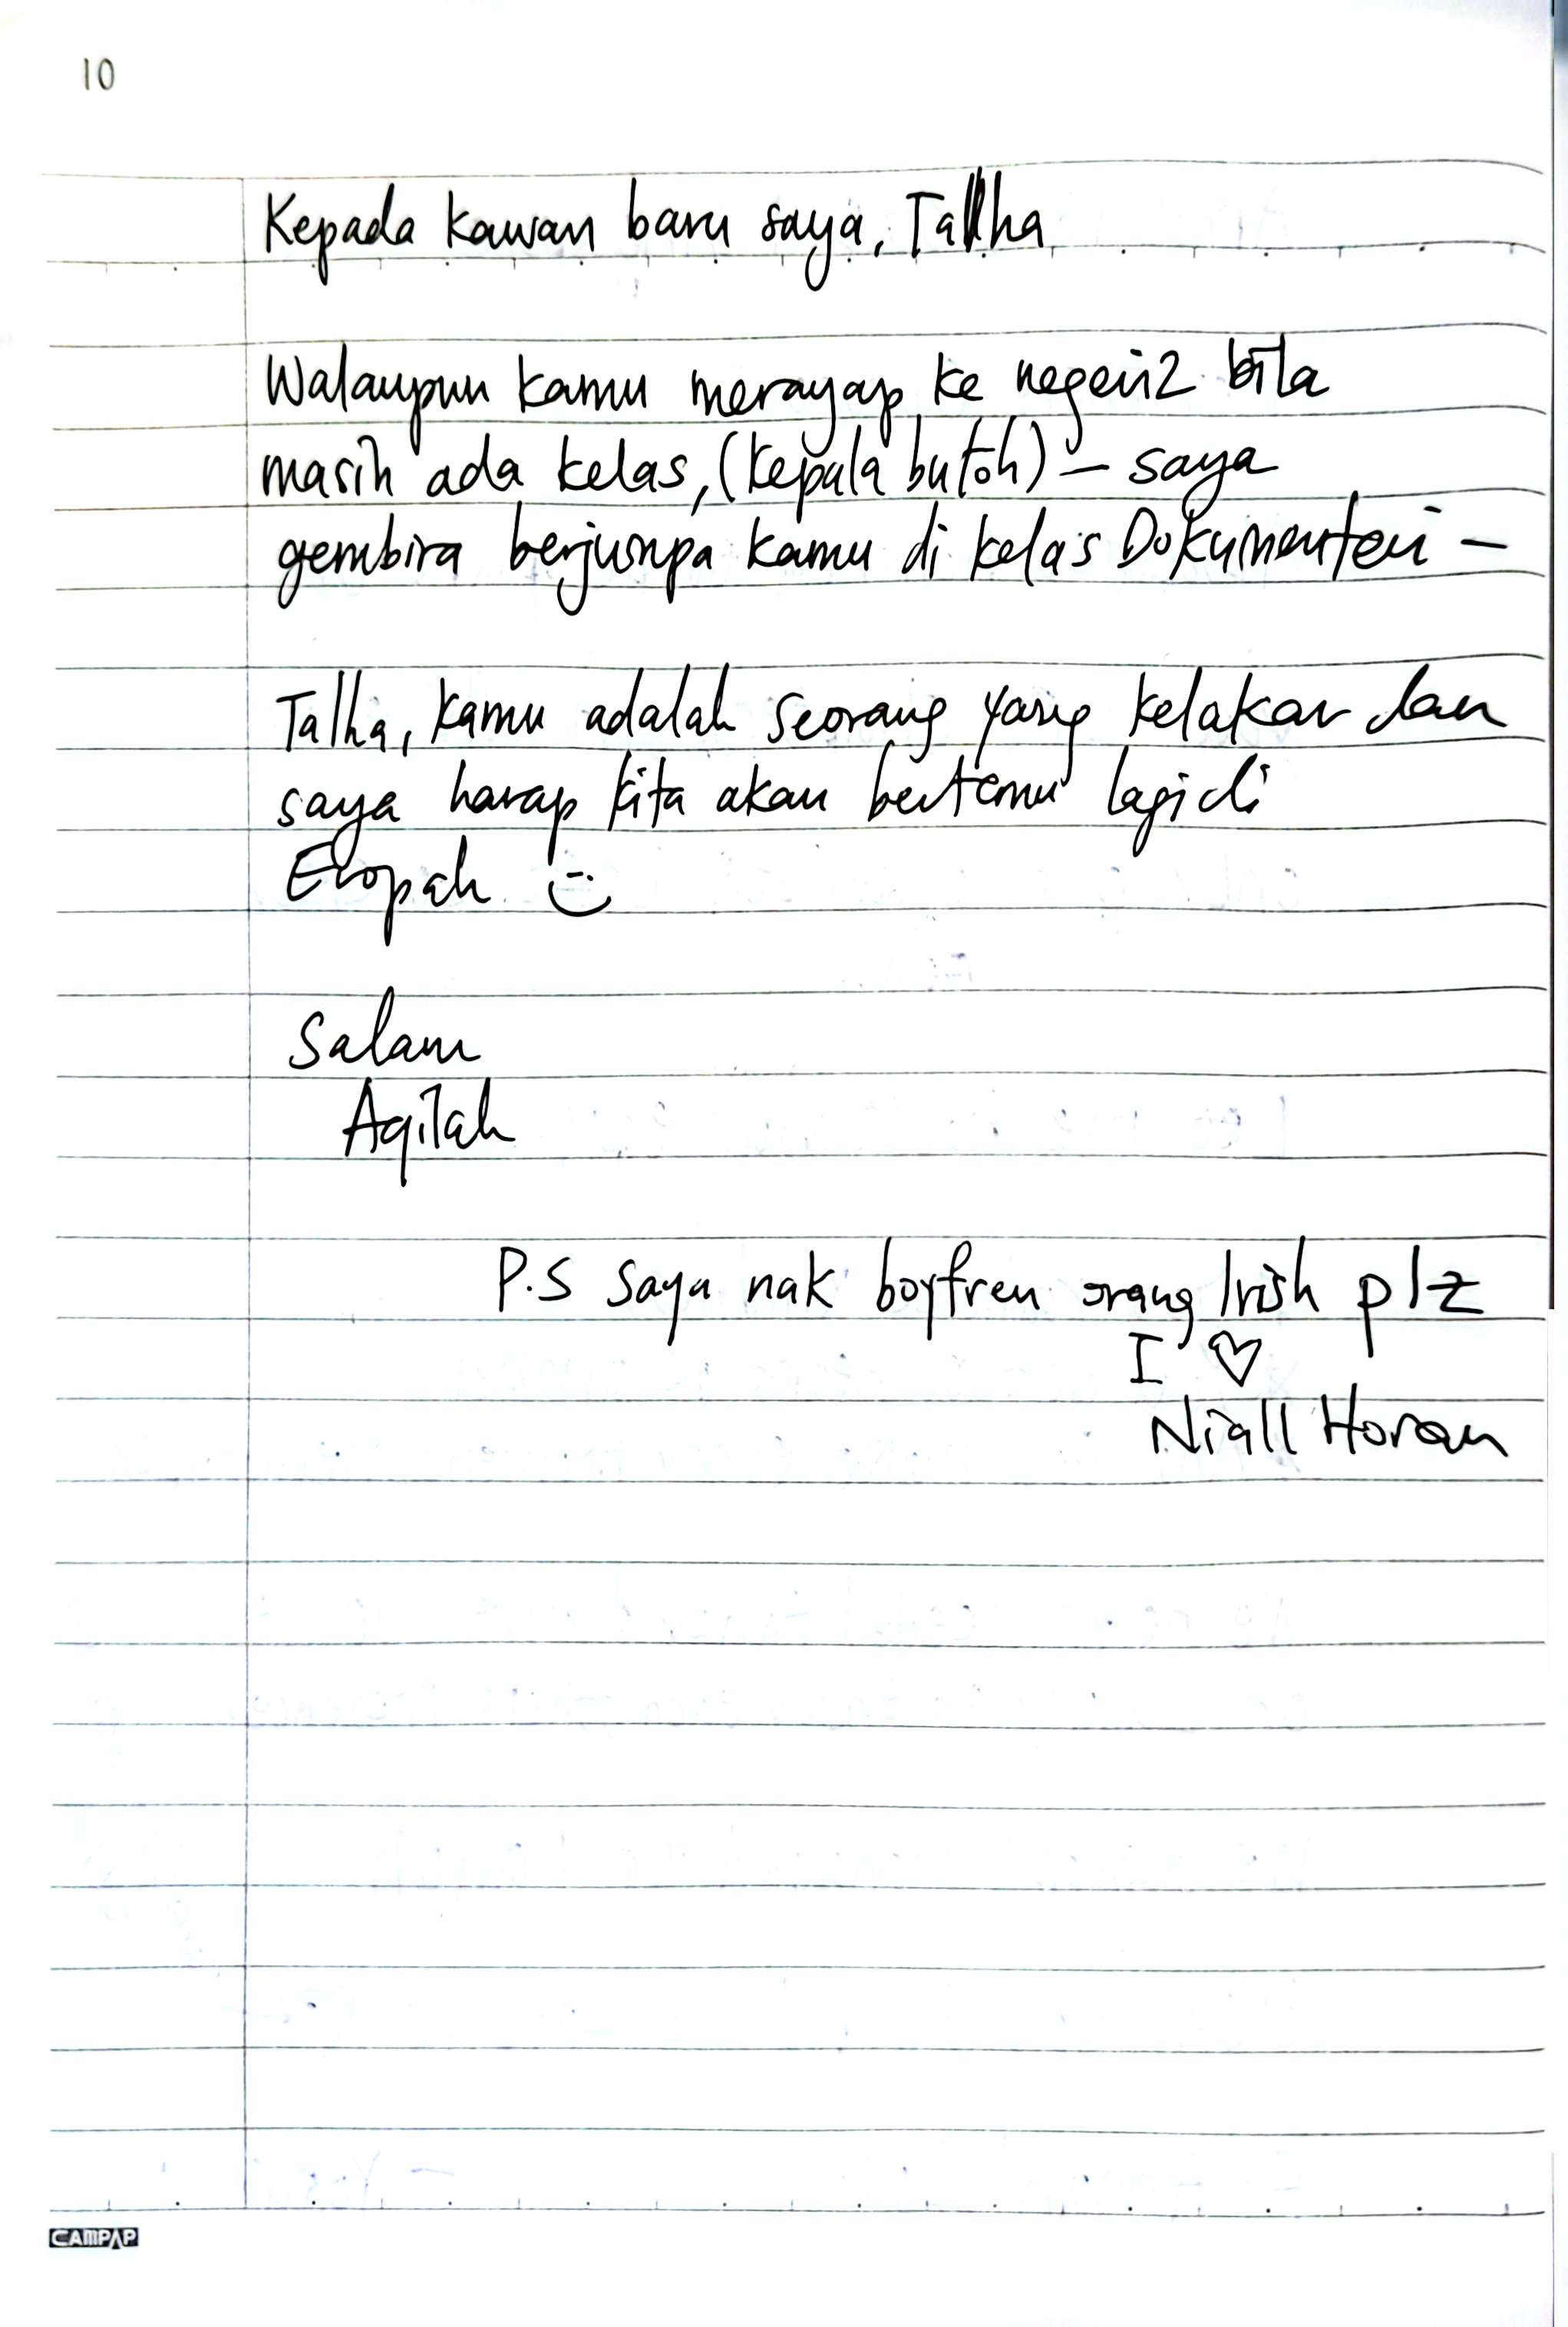 10
Kepada kawan baru saya, Talha
Walaupun kamu merayap ke negeri2 bila
masih ada kelas, (kepala butoh) – saya
gembira berjumpa kamu di kelas Dokumenteri –
Talha, kamu adalah seorang yang kelakar dan
saya harap kita akan bertemu lagi di
Eropah
Salam
Aqilah
P.S saya nak boyfren orang Irish plz
I ♡
Niall Horan
CAMPAP